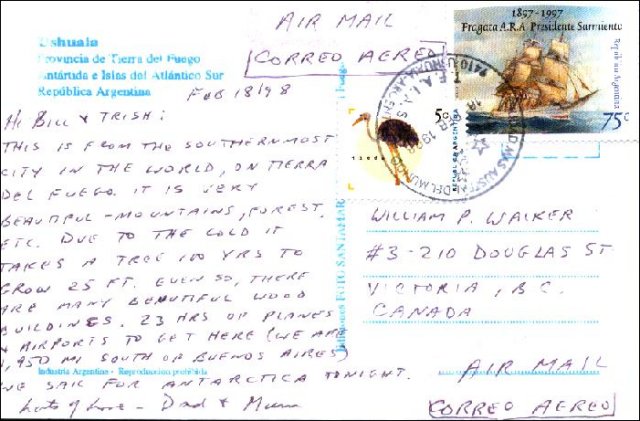 AIR MAIL
CORREO AEREO
Ushuaia
Provincia de Tierra del Fuego
Antártida e Islas del Atlántico Sur
República Argentina
FEB 18/98
HI BILL & TRISH:
THIS IS FROM THE SOUTHERNMOST
CITY IN THE WORLD, ON TIERRA
DEL FUEGO. IT IS VERY
BEAUTIFUL - MOUNTAINS, FOREST,
ETC. DUE TO THE COLD IT
TAKES A TREE 100 YRS TO
GROW 25 FT. EVEN SO, THERE
ARE MANY BEAUTIFUL WOOD
BUILDINGS. 23 HRS OF PLANES
& AIRPORTS TO GET HERE (WE ARE
,950 MI SOUTH OF BUENOS AIRES)
WE SAIL FOR ANTARCTICA TONIGHT.
Lots of Love - Dad & Mum
Industria Argentina - Reproduccion prohibida
FOTO SANTAMAR
5c
REPUBLICA ARGENTINA
1897-1997
Fragata A.R.A Presidente Sarmiento
República Argentina
75c
9410 USHUAIA
DEL MUNDO
WILLIAM P. WALKER
#3-210 DOUGLAS ST
VICTORIA, B.C.
CANADA
AIR MAIL
CORREO AEREO